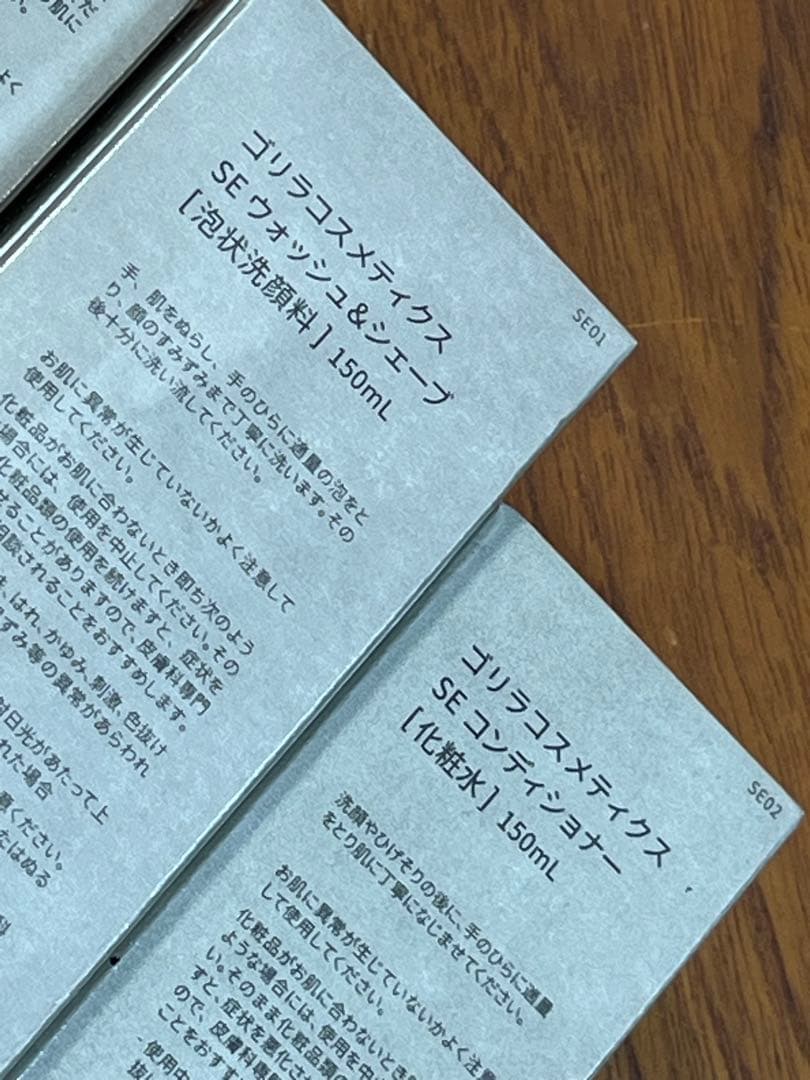 だ
お肌に
い。
よく
SE01
ゴリラコスメティクス
SE ウォッシュ&シェーブ
[泡状洗顔料] 150mL
手、肌をぬらし、手のひらに適量の泡をと
り、顔のすみずみまで丁寧に洗います。その
後十分に洗い流してください。
お肌に異常が生じていないかよく注意して
使用してください。
化粧品がお肌に合わないとき即ち次のよう
場合には、使用を中止してください。その
化粧品類の使用を続けますと、症状を
せることがありますので、皮膚科専門
相談されることをおすすめします。
はれ、かゆみ、刺激、色抜け
ずみ等の異常があらわれ
射日光があたって上
れた場合
ください。
たはぬる
科
SE02
ゴリラコスメティクス
SE コンディショナー
[化粧水] 150mL
洗顔やひげそりの後に、手のひらに適量
をとり肌に丁寧になじませてください。
お肌に異常が生じていないかよく注意
して使用してください。
化粧品がお肌に合わないとき
ような場合には、使用を中
い。そのまま化粧品類の
すと、症状を悪化さ
ので、皮膚科専
ことをおす
・使用中
抜